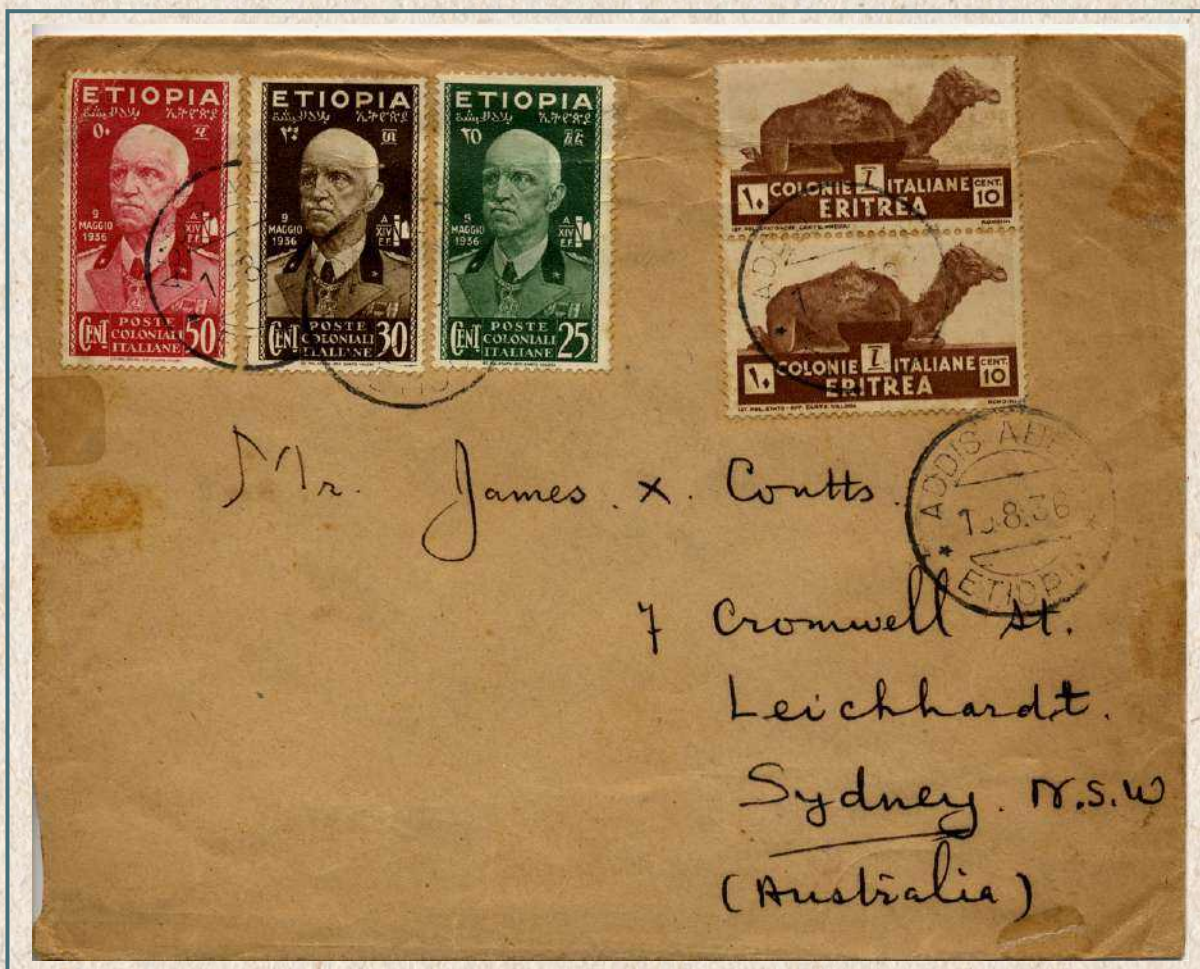 ETIOPIA
٥٠
9 MAGGIO 1936
A XIV E.F.
CENT POSTE COLONIALI ITALIANE 50
ETIOPIA
٣٠
9 MAGGIO 1936
A XIV E.F.
CENT POSTE COLONIALI ITALIANE 30
ETIOPIA
٢٥
9 MAGGIO 1936
A XIV E.F.
CENT POSTE COLONIALI ITALIANE 25
١٠ COLONIE ITALIANE CENT. 10
ERITREA
١٠ COLONIE ITALIANE CENT. 10
ERITREA
ADDIS
8.36
Mr. James x. Coutts.
7 Cromwell St.
Leichhardt.
Sydney. N.S.W
(Australia)